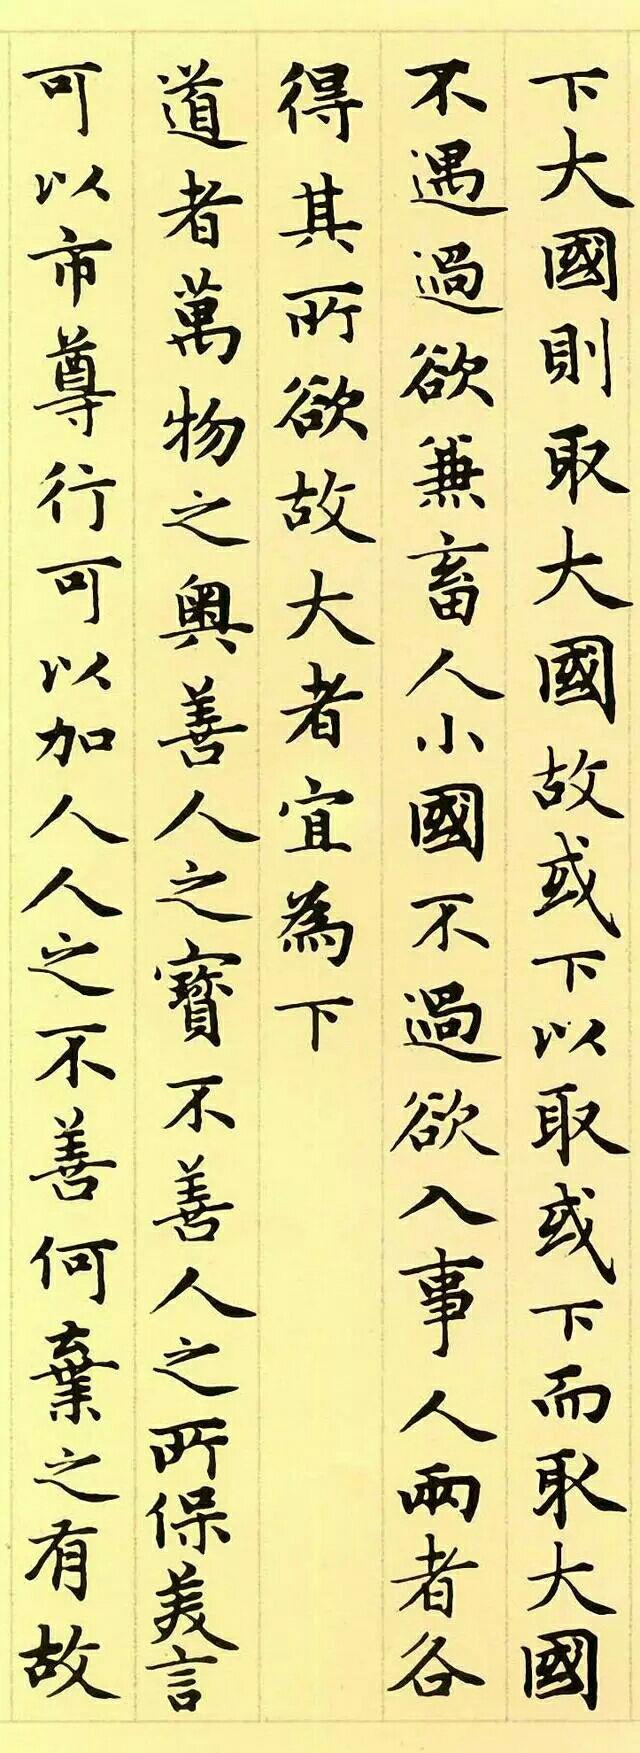 下大國則取大國故或下以取或下而取大國
不遇過欲兼畜人小國不過欲入事人兩者各
得其所欲故大者宜為下
道者萬物之奧善人之寶不善人之所保美言
可以市尊行可以加人人之不善何棄之有故